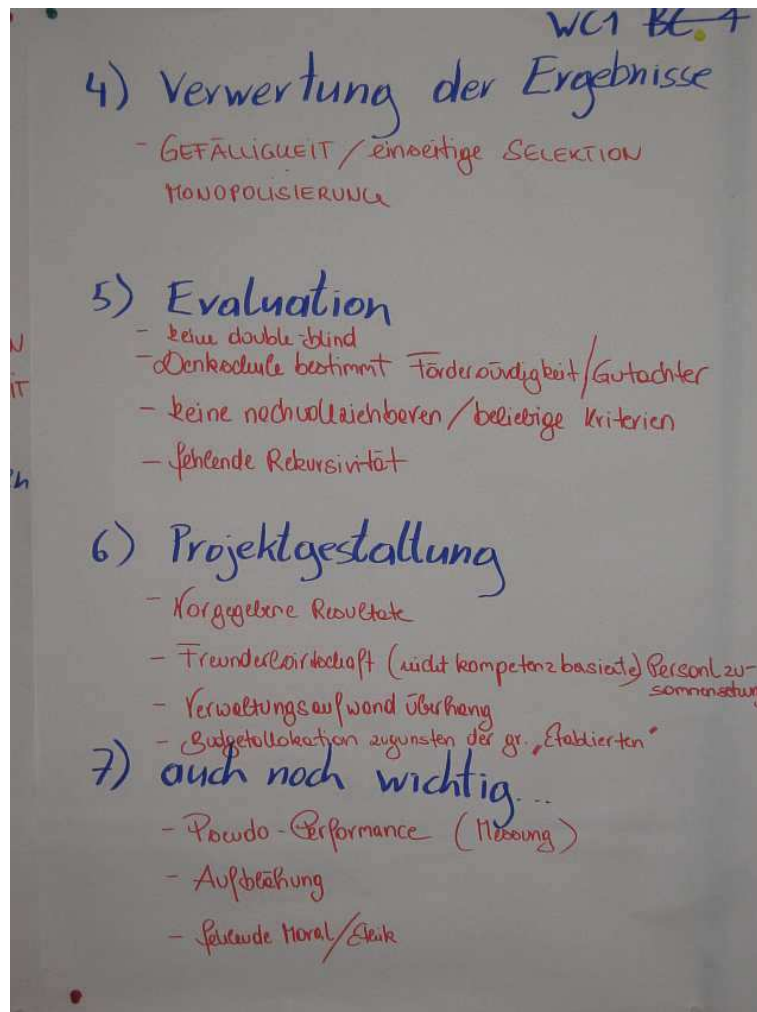 WC1 BC. 4
4) Verwertung der Ergebnisse
- GEFÄLLIGKEIT / einseitige SELEKTION
MONOPOLISIERUNG
5) Evaluation
- keine double-blind
- Denkschule bestimmt Förderwürdigkeit/Gutachter
- keine nachvollziehbaren / beliebige Kriterien
- fehlende Rekursivität
6) Projektgestaltung
- Vorgegebene Resultate
- Freunderlwirtschaft (nicht kompetenzbasierte) Personl zu-
sammensetzung
- Verwaltungsaufwand überhang
- Budgetallokation zugunsten der gr. „Etablierten"
7) auch noch wichtig...
- Pseudo-Performance (Messung)
- Aufblähung
- fehlende Moral/Ethik
N
IT
h